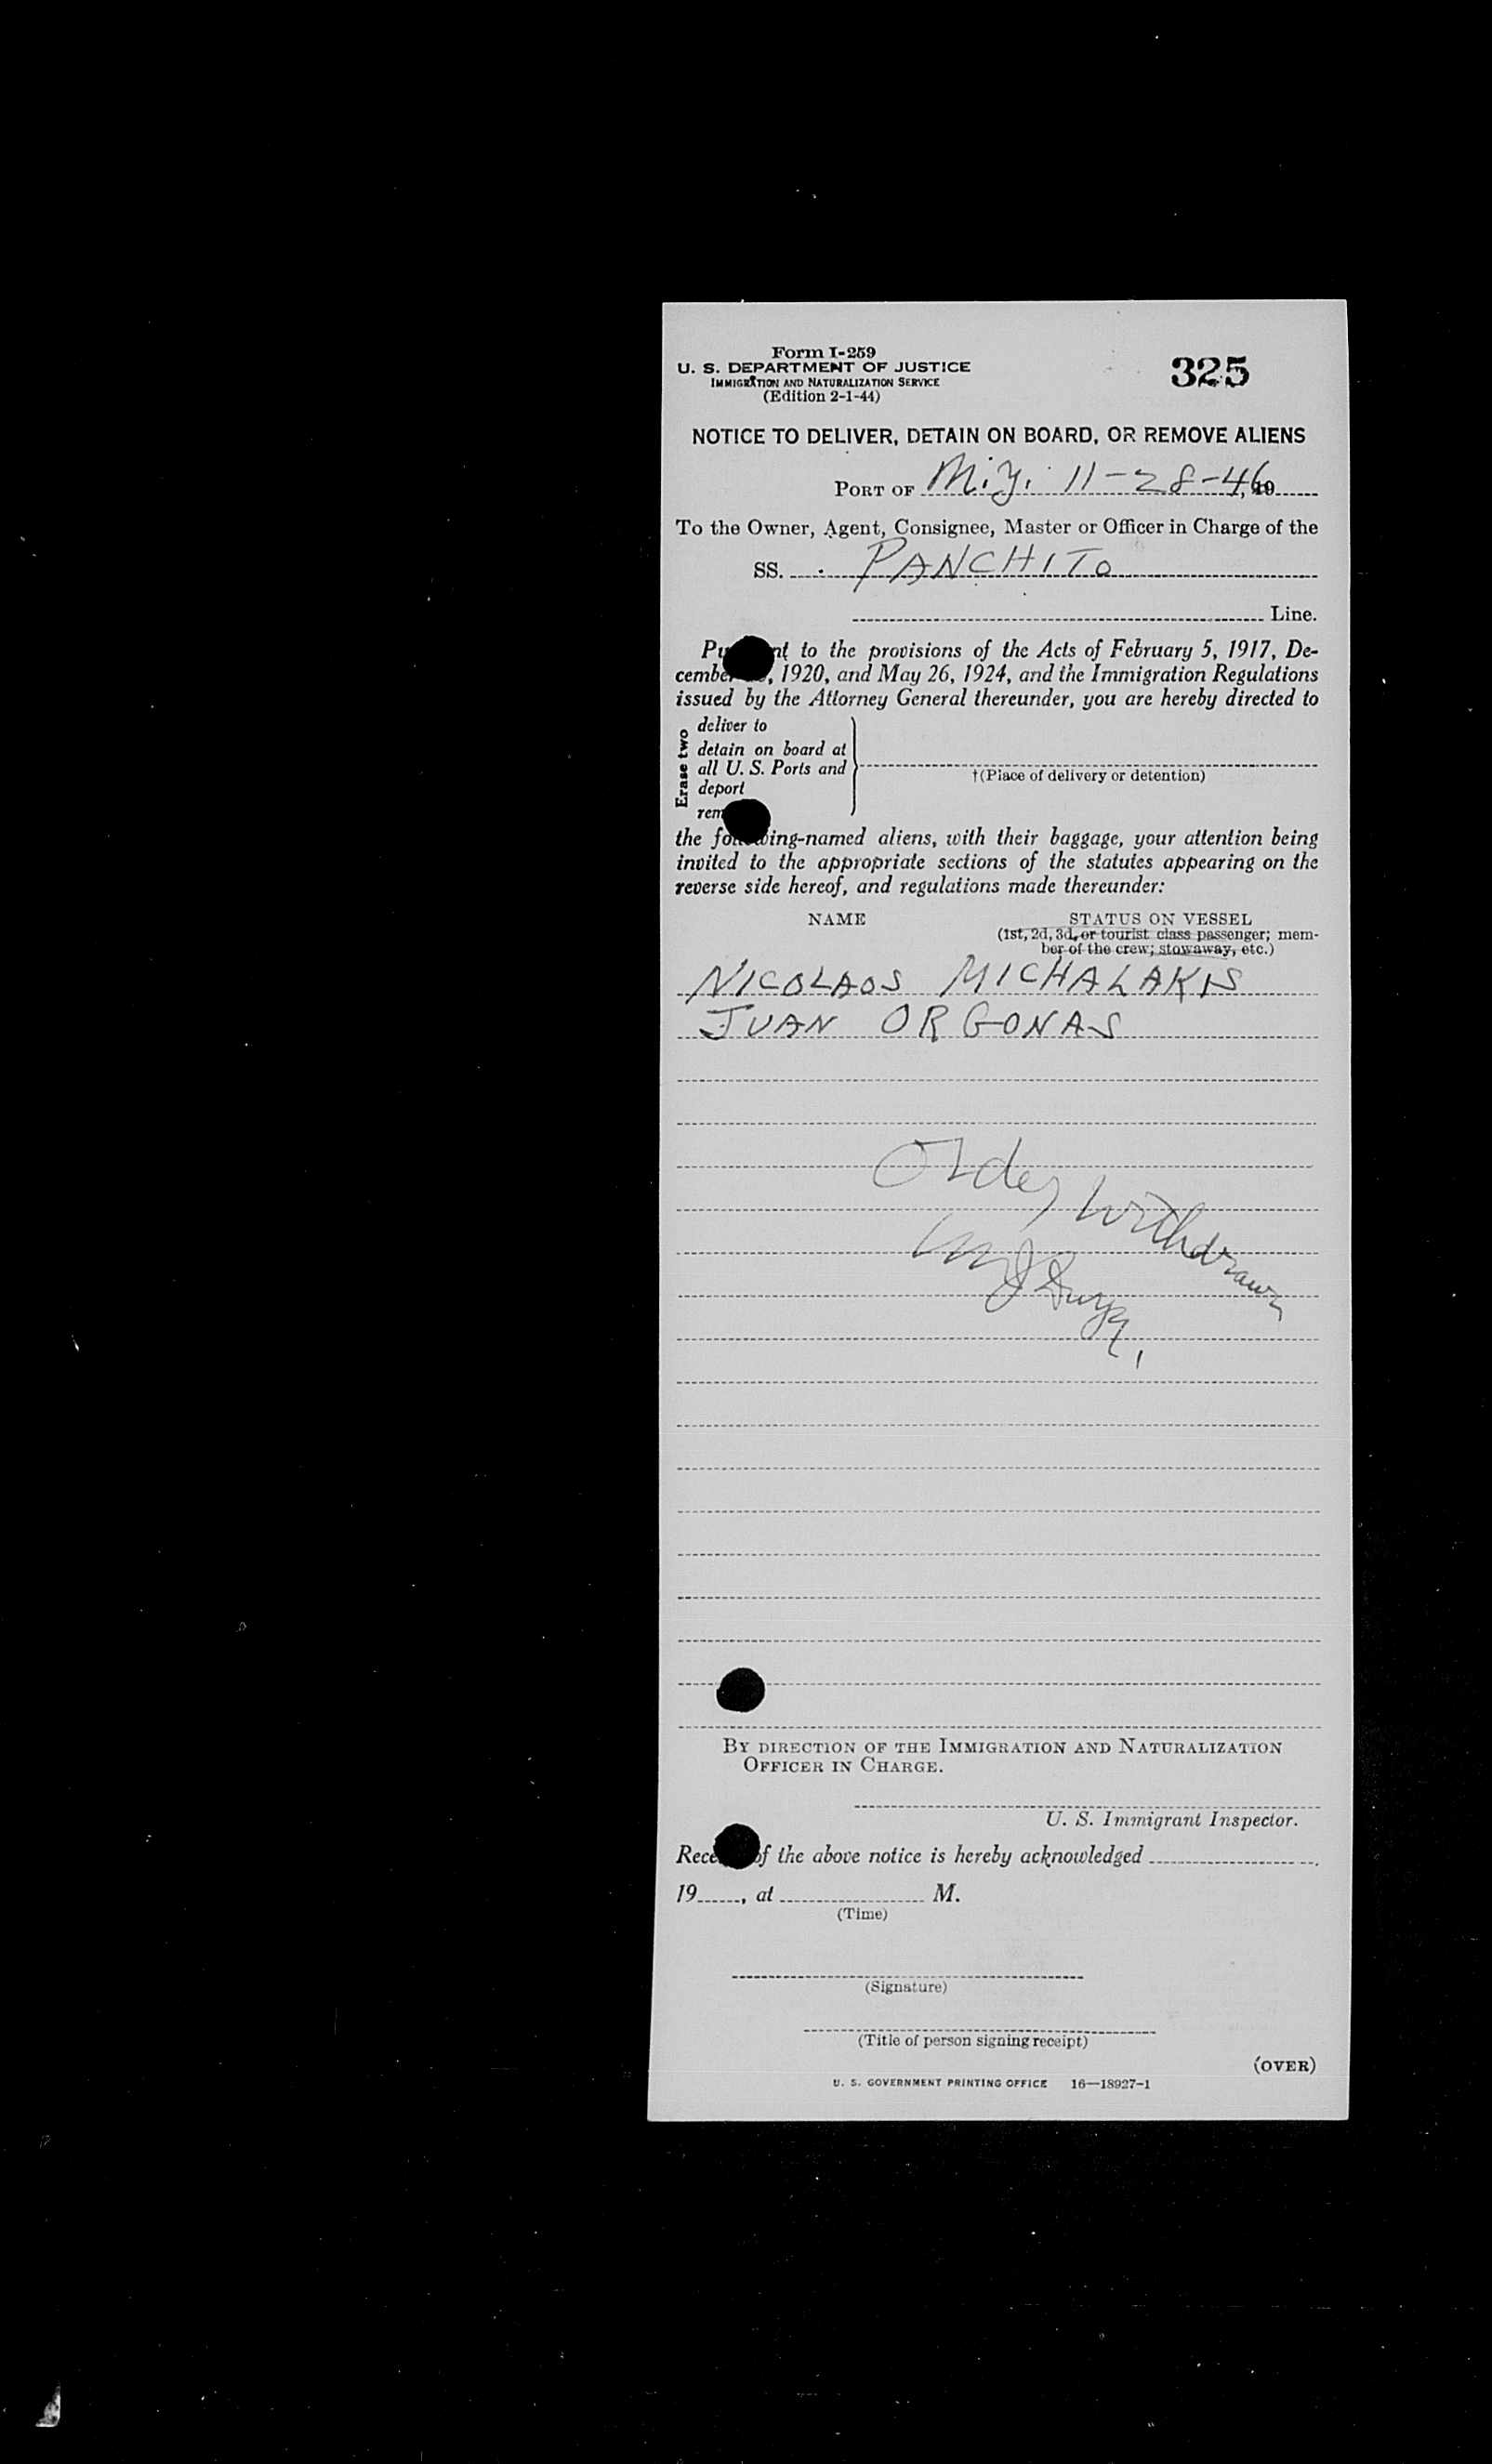 Form I-259
325
U. S. DEPARTMENT OF JUSTICE
IMMIGRATION AND NATURALIZATION SERVICE
(Edition 2-1-44)
NOTICE TO DELIVER, DETAIN ON BOARD, OR REMOVE ALIENS
PORT OF 11-28-46, 19
To the Owner, Agent, Consignee, Master or Officer in Charge of the
SS. PANCHITO
Line.
to the provisions of the Acts of February 5, 1917, De-
, 1920, and May 26, 1924, and the Immigration Regulations
issued by the Attorney General thereunder, you are hereby directed to
Erase two
deliver to
detain on board at
all U. S. Ports and
deport
†(Place of delivery or detention)
the following-named aliens, with their baggage, your attention being
invited to the appropriate sections of the statutes appearing on the
reverse side hereof, and regulations made thereunder:
NAME STATUS ON VESSEL
(1st, 2d, 3d, or tourist class passenger; mem-
ber of the crew; stowaway, etc.)
NICOLAOS MICHALAKIS
JUAN ORGONAS
Order Withdrawn
BY DIRECTION OF THE IMMIGRATION AND NATURALIZATION
OFFICER IN CHARGE.
U. S. Immigrant Inspector.
of the above notice is hereby acknowledged
19, at M.
(Time)
(Signature)
(Title of person signing receipt)
(OVER)
U. S. GOVERNMENT PRINTING OFFICE 16—18927-1